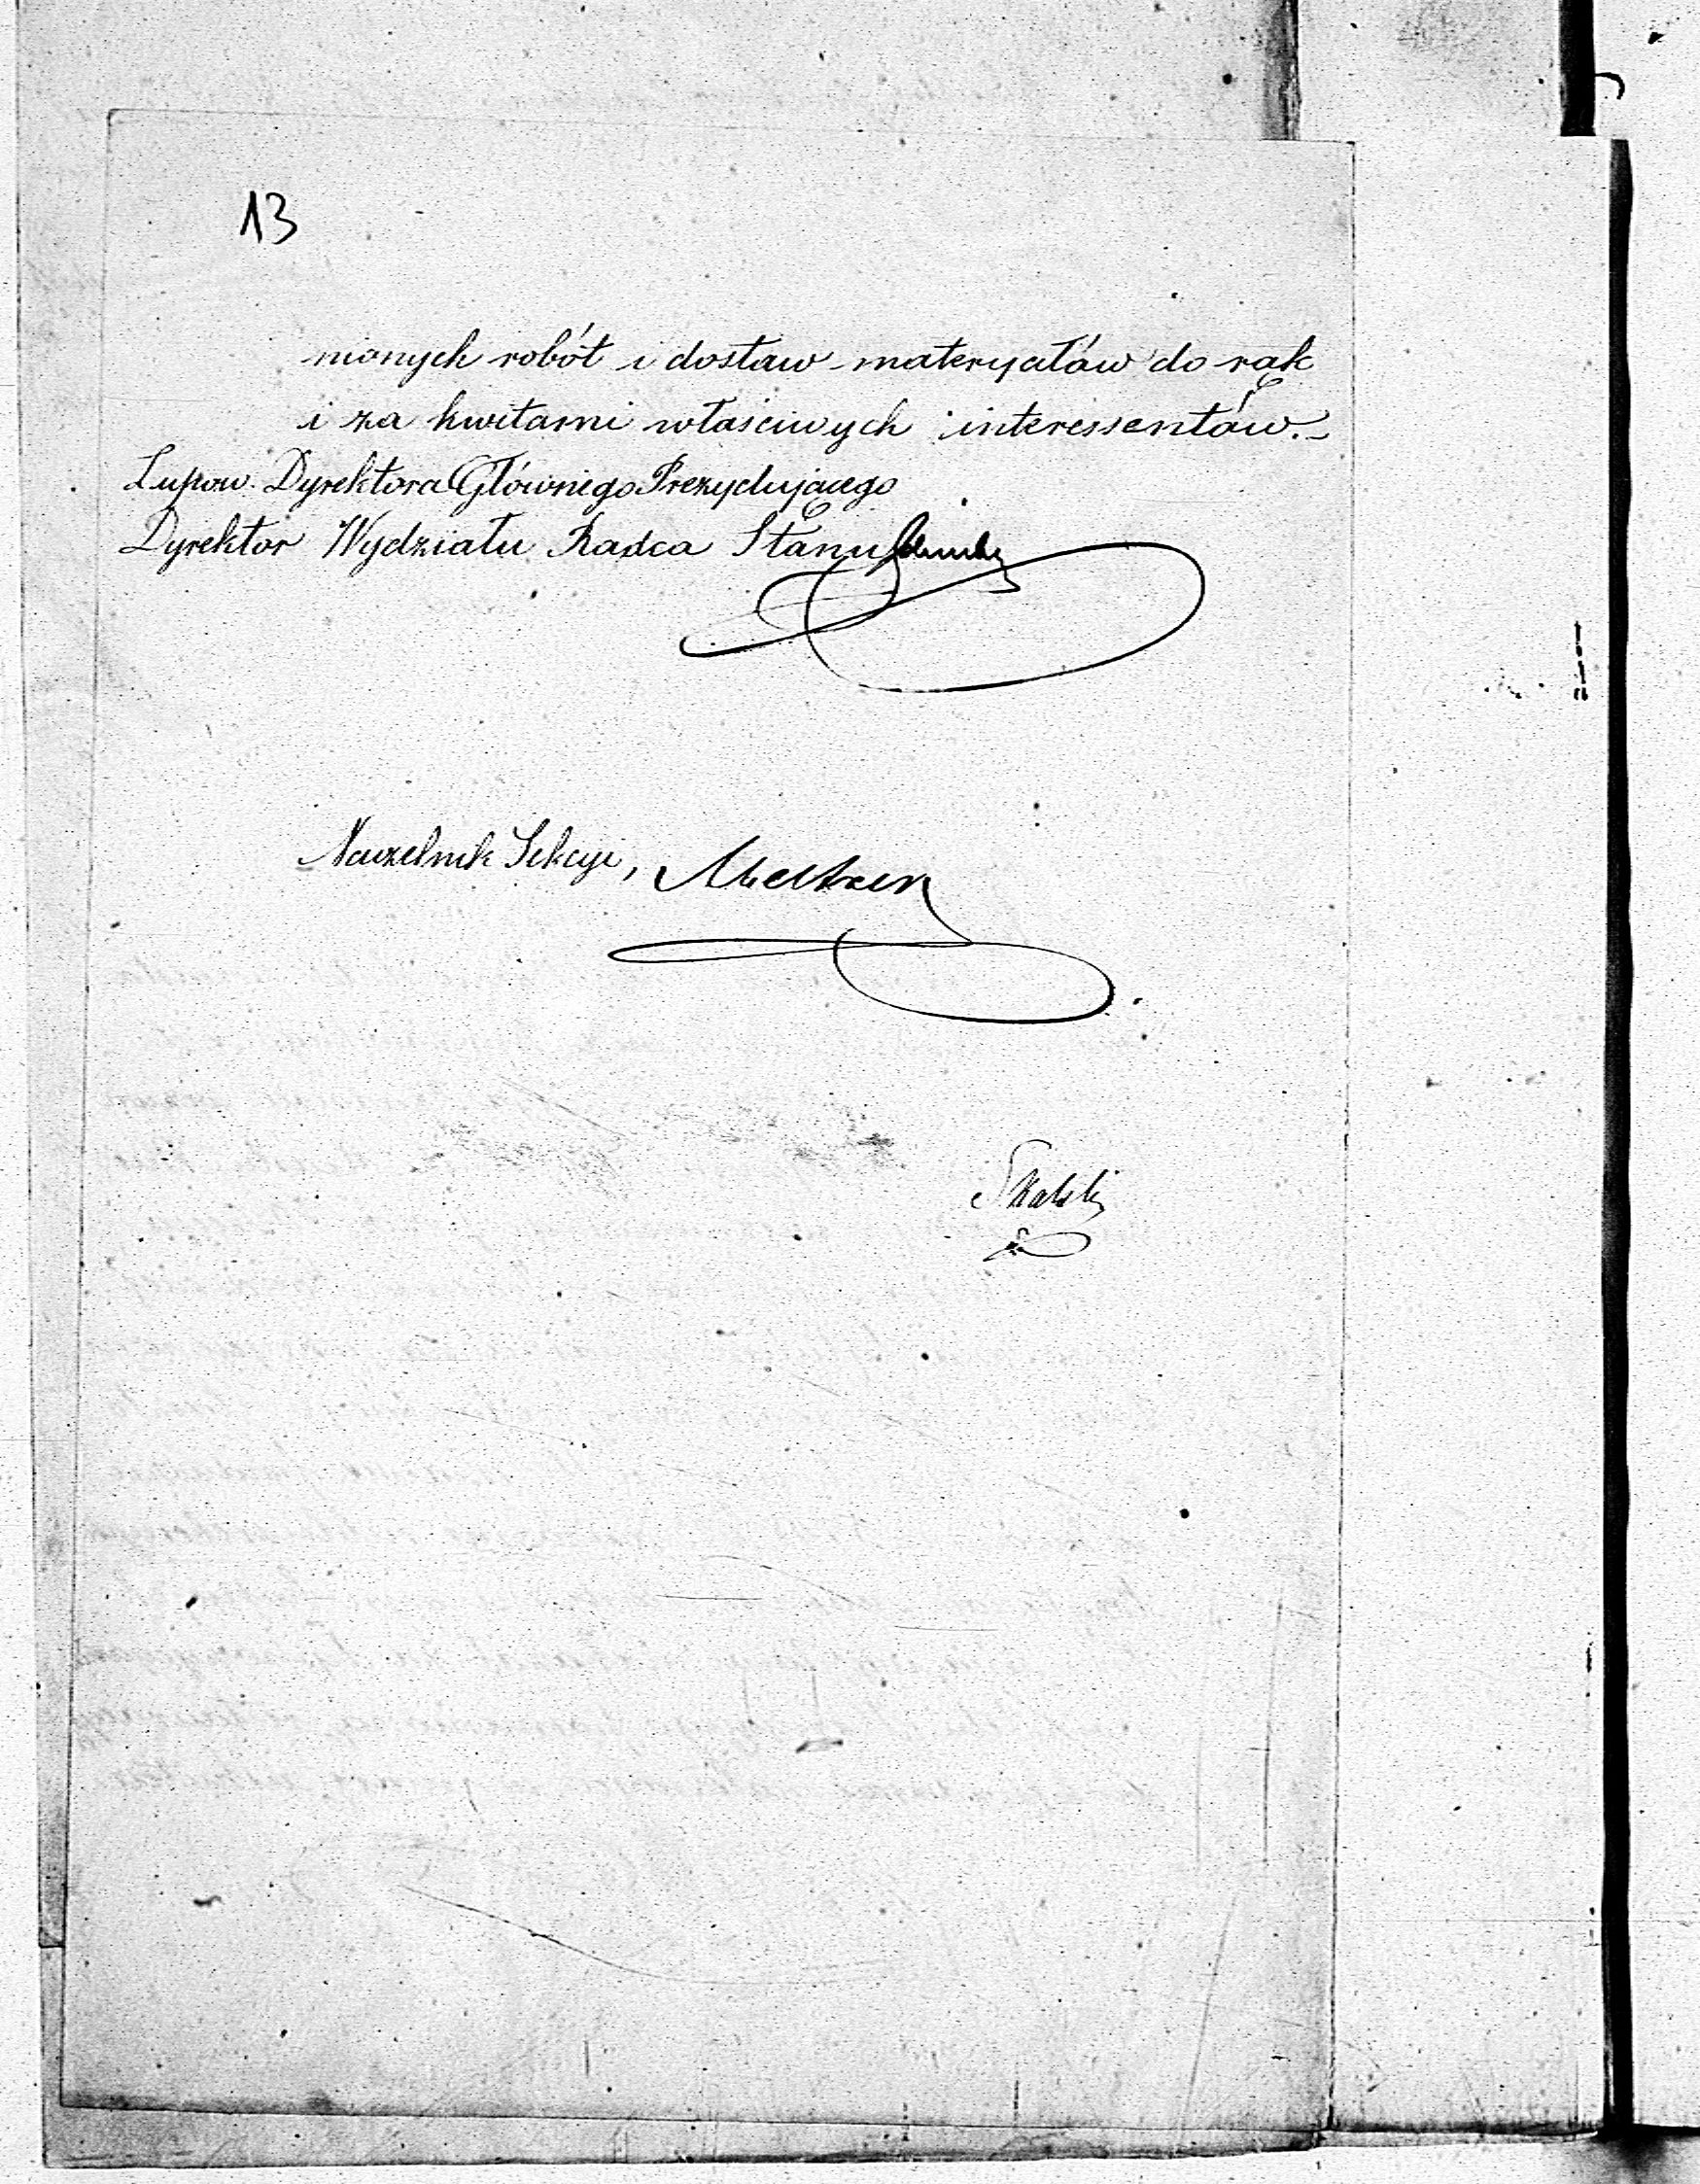 13
nionych robót i dostaw materyałów do rąk
i za kwitami właściwych interessentów.
Z upow. Dyrektora Głównego Prezydującego
Dyrektor Wydziału Radca Stanu
Naczelnik Sekcyi, Meltzer
Skalski